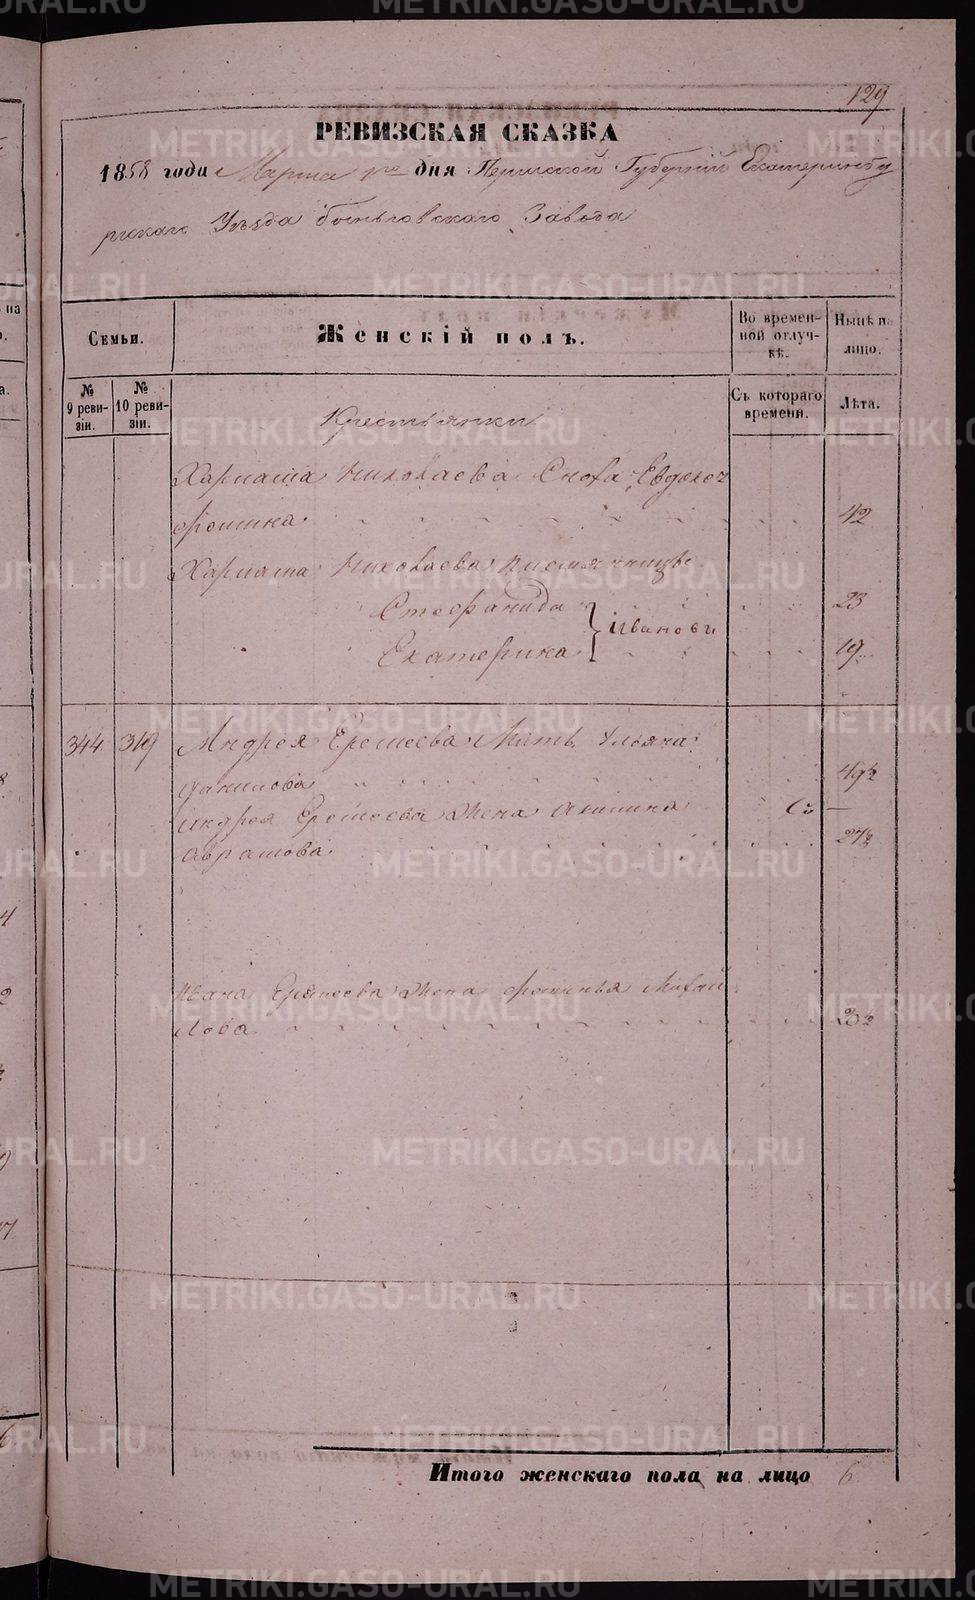 129
РЕВИЗСКАЯ СКАЗКА
1858 года Марта 1го дня Пермской Губерніи Екатеринбу
ргскаго Уѣзда Быньговскаго Завода
Семьи.
Женскій полъ.
Во времен-
ной отлуч-
кѣ.
Нынѣ на
лицо.
№
9 реви-
зіи.
№
10 реви-
зіи.
Съ котораго
времени.
Лѣта.
Крестьянки
Харлама Николаева Сноха Евдокея
42
Харлама Николаева племянницы
Стефанида 23
Ивановы
Екатерина 19
344 319 Андрея Ереמеева Мать Ульяна
Данилова 49½
Андрея Еремеева Жена Акилина
Аврамова 27½
Ивана Еремеева Жена Михай
лова
Итого женскаго пола на лицо 6
METRIKI.GASO-URAL.RU